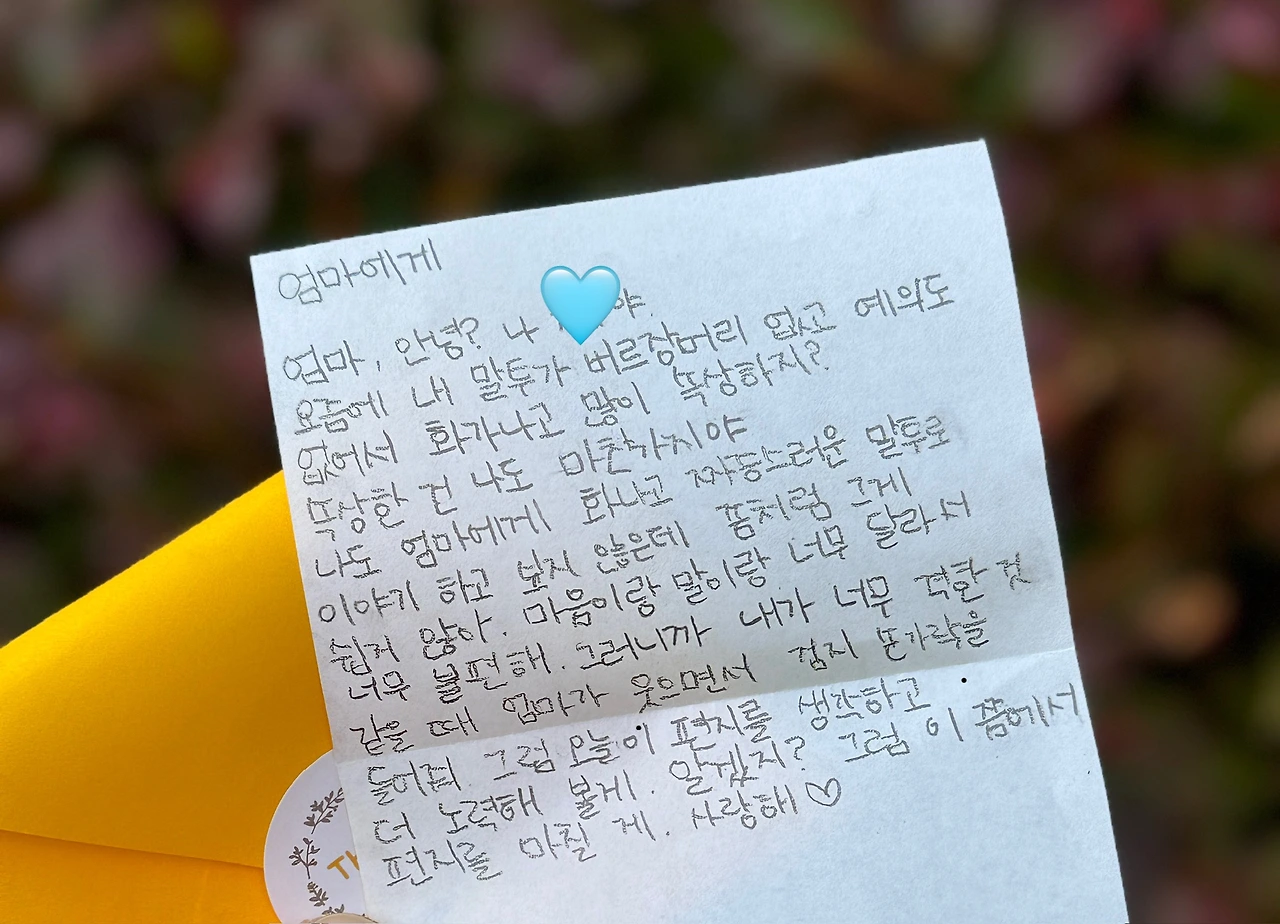 엄마에게
엄마, 안녕? 나 야.
요즘에 내 말투가 버르장머리 없고 예의도
없어서 화가나고 많이 속상하지?
속상한 건 나도 마찬가지야
나도 엄마에게 화나고 짜증스러운 말투로
이야기 하고 싶지 않은데 좀처럼 그게
쉽지 않아. 마음이랑 말이랑 너무 달라서
너무 불편해. 그러니까 내가 너무 격한 것
같을 때 엄마가 웃으면서 검지 손가락을
들어줘 그럼 오늘 이 편지를 생각하고
더 노력해 볼게. 알겠지? 그럼 이 쯤에서
편지를 마칠 게. 사랑해♡